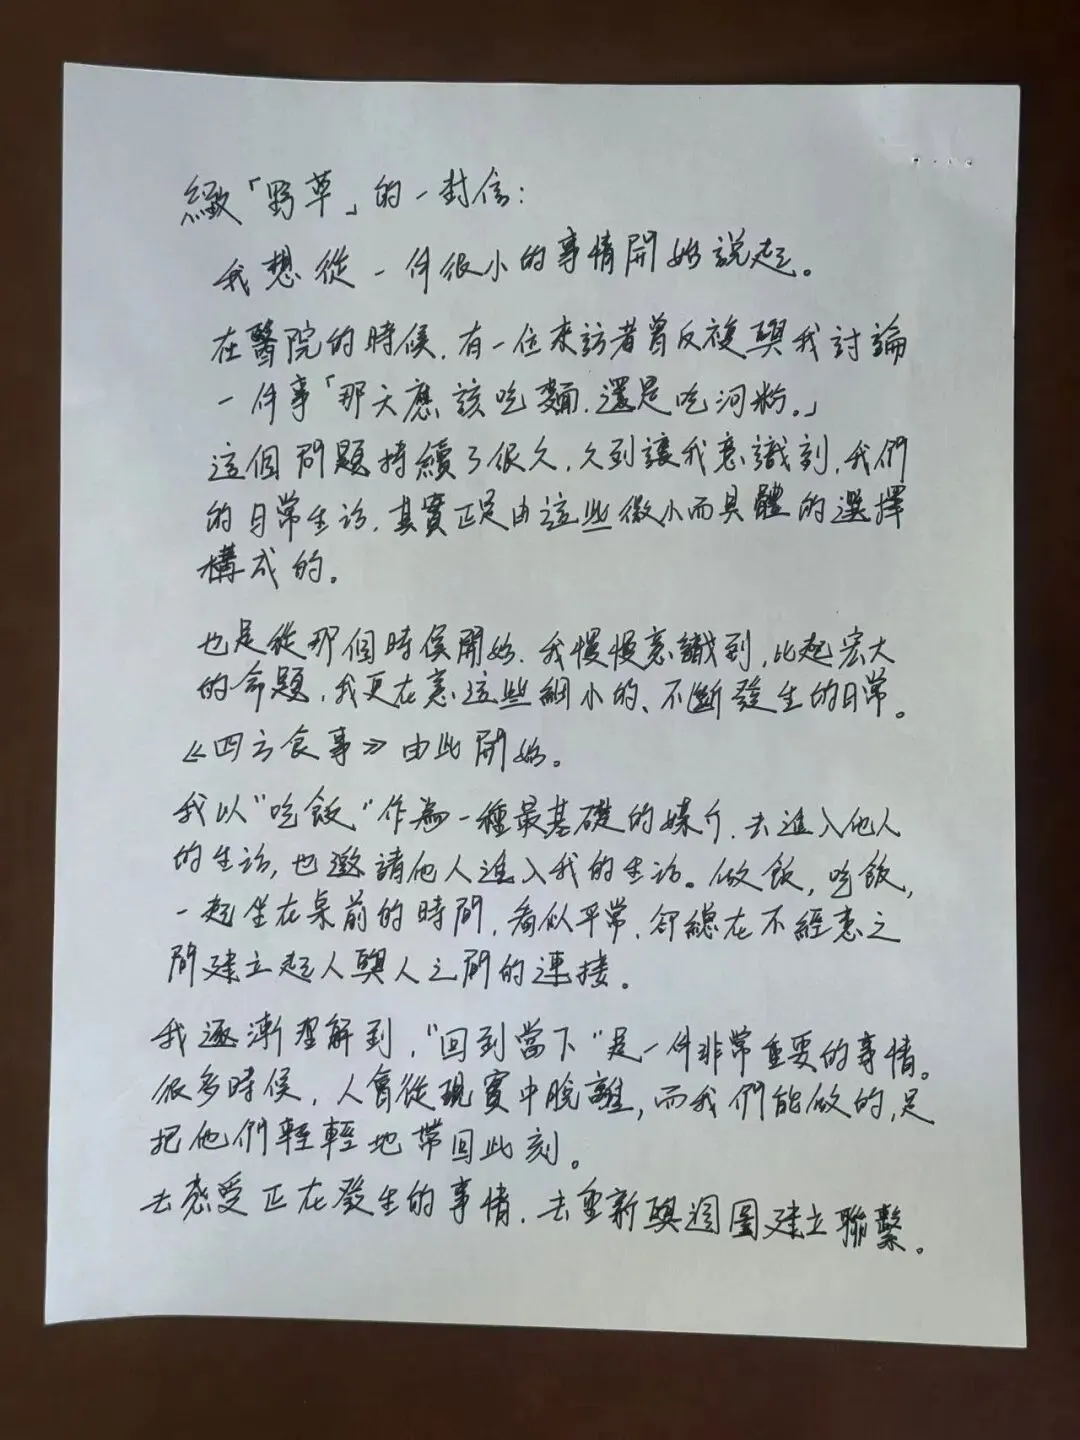 致「野草」的一封信：
我想從一件很小的事情開始說起。
在醫院的時候，有一位來訪者曾反複與我討論
一件事「那天應該吃麵，還是吃河粉。」
這個問題持續了很久，久到讓我意識到，我們
的日常生活，其實正是由這些微小而具體的選擇
構成的。
也是從那個時候開始，我慢慢意識到，比起宏大
的命題，我更在意這些細小的、不斷發生的日常。
《四方食事》由此開始。
我以“吃飯”作為一種最基礎的媒介，去進入他人
的生活，也邀請他人進入我的生活。做飯，吃飯，
一起坐在桌前的時間，看似平常，卻總在不經意之
間建立起人與人之間的連接。
我逐漸理解到，“回到當下”是一件非常重要的事情。
很多時候，人會從現實中脫離，而我們能做的，是
把他們輕輕地帶回此刻。
去感受正在發生的事情，去重新與周圍建立聯繫。